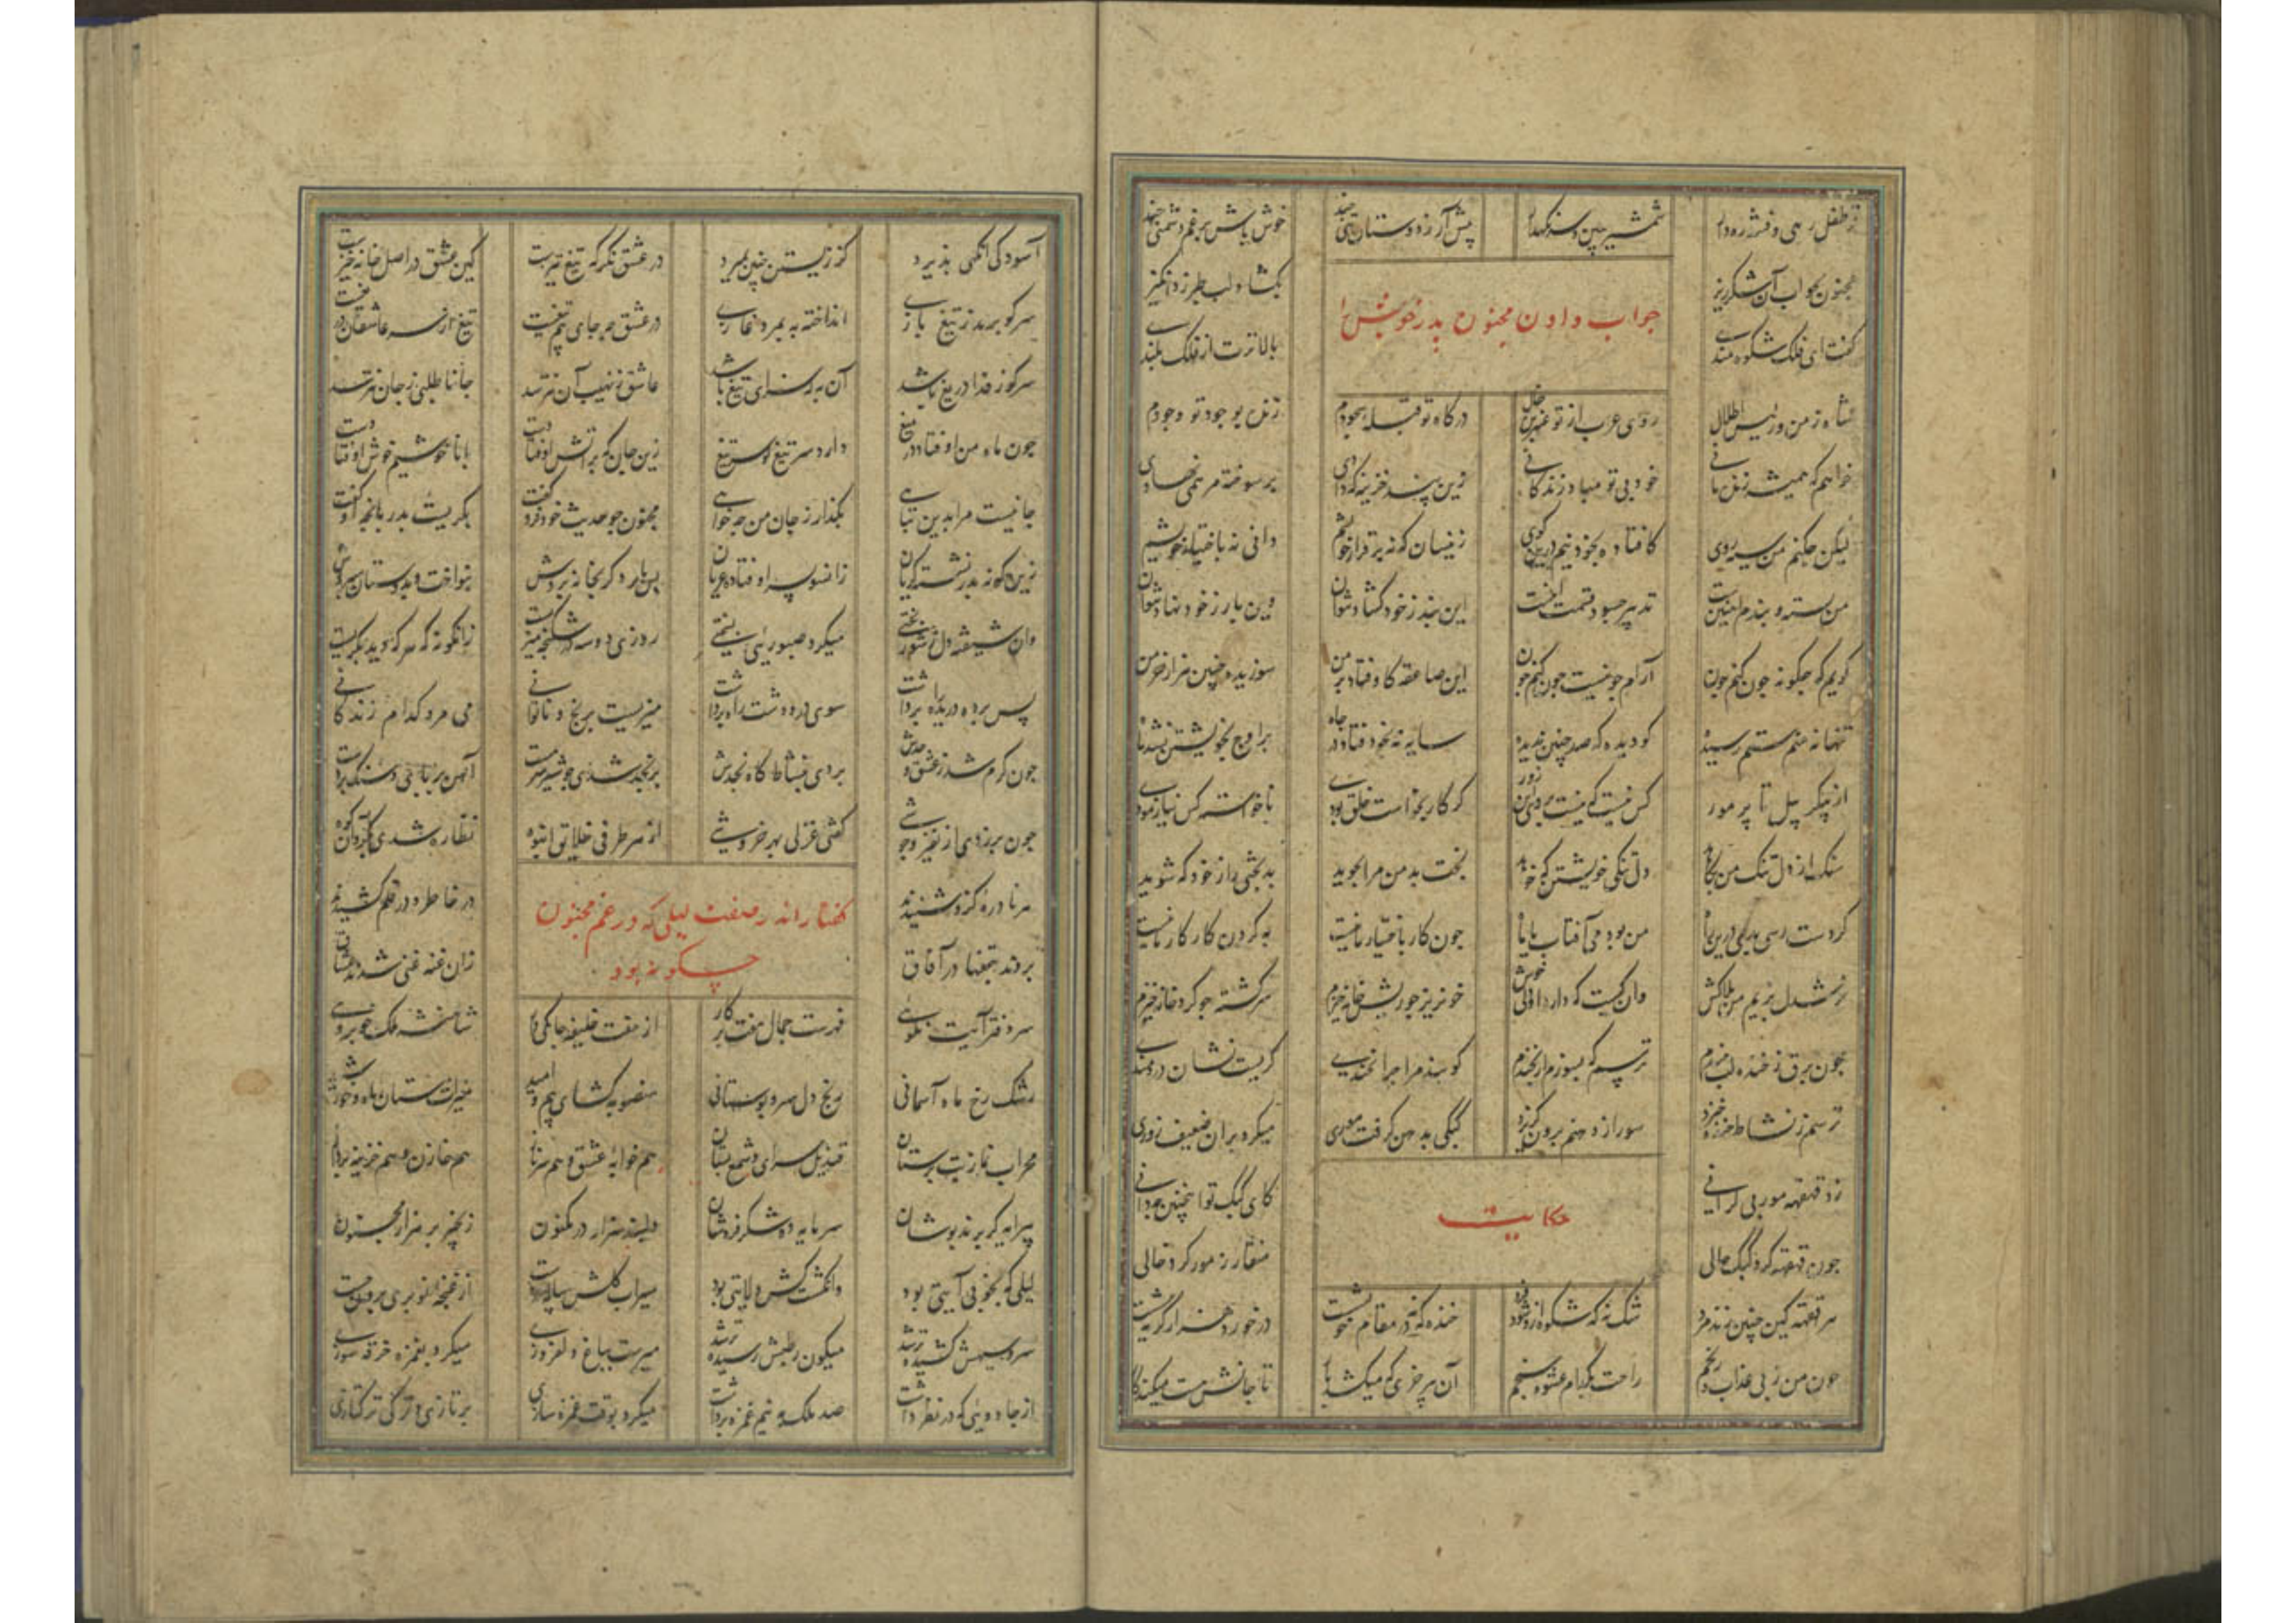 ز طفل رهی و فتنه ره دار شمشیر ببین و سر نکهدار پیش آر ز دوستان تنی چند خوش باش برغم دشمنی چند
مجنون بجواب آن شکرریز بکشاد لب طبرزد انکیز
جواب دادن مجنون پدر خویش را
کفت ای فلک شکوه مندی بالاترت از فلک بلندی
شاه دمن و رئیس اطلال روی عرب از تو عنبرین خال درکاه تو قبله سجودم زنده بوجود تو وجودم
خواهم که همیشه زنده مانی خود بی تو مباد زندکانی زین پند خزینه که دادی بر سوخته مرهمی نهادی
لیکن چکنم من سیه روی کافتاده بخود نیم درین کوی زینسان که نه بر قرار خویشم دانی نه باختیار خویشم
من بسته و بندم آهنین است تدبیر چه سود قسمت اینست این بند ز خود کشاد نتوان وین بار ز خود نهاد نتوان
کویم که چکونه چون کنم چون آرام چو نیست چون کنم چون این صاعقه کاوفتاد بر من سوزیده چنین هزار خرمن
تنها نه منم ستم رسیده کو دیده که صد چنین ندیده سایه نه بخود فتاد در چاه بر اوج بخویشتن نشد ماه
از پیکر پیل تا پر مور کس نیست که نیست بر وی این زور کر کار بخواست خلق بودی ناخواسته کس نیازمودی
سنک از دل تنک من بکاهد دل تنکی خویشتن که خواهد بخت بد من مرا بجوید بدبختی را ز خود که شوید
کر دست رسی بدی درین راه من بودمی آفتاب یا ماه چون کار باختیار ما نیست به کردن کار کار ما نیست
خوشدل نزیم من بلاکش وان کیست که دارد او دلی خوش خونریز چو خانه خیزم سرکشته چو کرد خانه خیزم
چون برق ز خنده لب ببندم ترسم که بسوزم ار بخندم کویند مرا چرا نخندی کریست نشان دردمندی
ترسم ز نشاط خنده خیزد سوز از دهنم برون کریزد کبکی بدهن کرفت موری میکرد بران ضعیف زوری
زد قهقهه مور بی کرانی کای کبک تو اینچنین چه دانی
حکایت
چون قهقهه کرد کبک حالی منقار ز مور کرد خالی
هر قهقهه کین چنین زند مرد شک نه که شکوه ازو شود فرد خنده که نه در مقام خویشست در خورد هزار کریه بیشست
چون من ز پی عذاب و رنجم راحت بکدام عشوه سنجم آن پیر خری که میکشد بار تا جانش هست میکند کار
آسودکی آنکهی پذیرد کز زیستن چنین بمیرد در عشق نکر که تیغ تیزست کین عشق در اصل خانه خیزست
هر کو برمد ز تیغ بازی انداخته به بمرد غازی در عشق چه جای بیم تیغست تیغ از سر عاشقان دریغست
عاشق ز نهیب آن نترسد جانان طلبی ز جان نترسد
چون ماه من اوفتاد در میغ دارد سر تیغ کو سر تیغ زین جان که بر آتش اوفتادست با ناخوشیم خوش اوفتادست
جانیست مرا بدین تباهی بکذار ز جان من چه خواهی مجنون چو حدیث خود فرو کفت بکریست پدر بدانچه او کفت
زین کونه پدر نشسته کریان زانسو پسر اوفتاده عریان پس بار دکر بخانه بردش بنواخت و بدوستان سپردش
وان شیفته دل ز شور بختی میکرد صبوریی بسختی روزی دو سه در شکنجه میزیست زانکونه که هر که دید بکریست
پس پرده دریده راه برداشت سوی در و دشت راه برداشت میزیست برنج و ناتوانی می مرد کدام زندکانی
چون کرم شدی ز عشق وجدش بردی بنشاط کاه نجدش بر نجد شدی چو شیر سرمست آهن بر پای و سنک بر دست
چون برزدی از نفیر جوشی کفتی غزلی بهر خروشی از هر طرفی خلایق انبوه نظاره شدی بکرد آن کوه
هر نادره کزو شنیدند در خاطر و در قلم کشیدند
کفتار اندر صفت لیلی که در غم مجنون چکونه بود
بردند بتحفها در آفاق زان غنیه غنی شدند عشاق
سر دفتر آیت نکویی شاهنشه ملک خوبرویی
فهرست جمال هفت پرکار از هفت خلیفه جامکی خوار
رشک رخ ماه آسمانی رنج دل سرو بوستانی منصوبه کشای بیم و امید میراث ستان ماه و خورشید
محراب نماز بت پرستان قندیل سرای و شمع بستان هم خوابه عشق و هم سرناز هم خازن و هم خزینه پرداز
پیرایه کر پرند پوشان سرمایه ده شکر فروشان دلبند هزار در مکنون زنجیر بر هزار مجنون
لیلی که بخوبی آیتی بود وانکشت کش ولایتی بود سیراب کلش از غنچه نوبری برون جست
سرو سهیش کشیده‌تر شد میکون رطبش رسیده‌تر شد میرست بباغ دلفروزی میکرد بغمزه خرقه سوزی
از جادویی که در نظر داشت صد ملک به نیم غمزه برداشت میکرد بوقت غمزه سازی بر تازی و ترک ترکتازی